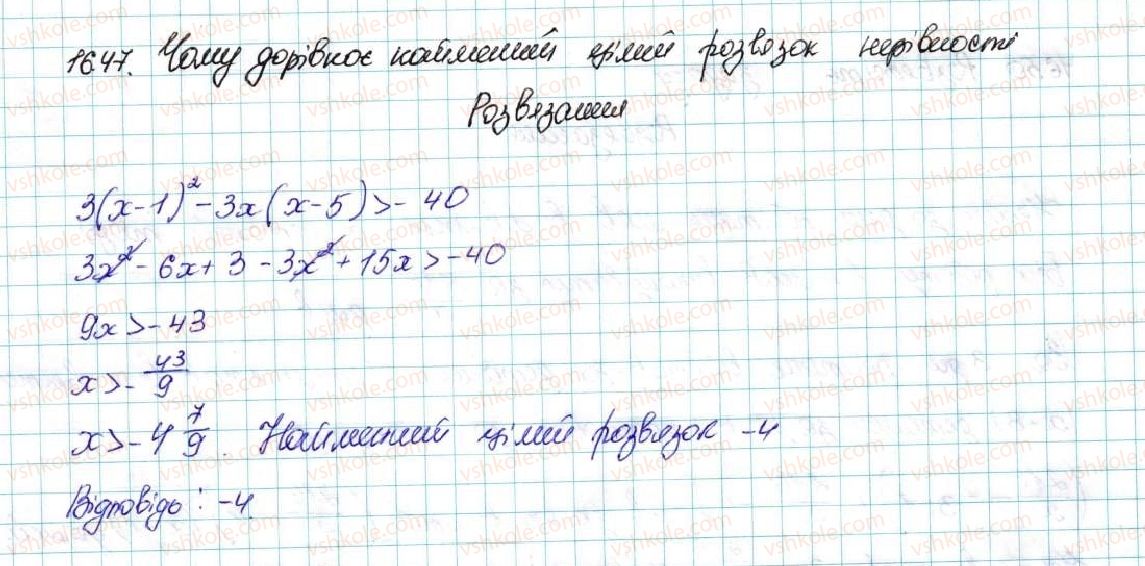 1647. Чому дорівнює найменший цілий розвязок нерівності
Розвязання
3(x-1)² - 3x(x-5) > -40
3x² - 6x + 3 - 3x² + 15x > -40
9x > -43
x > -43/9
x > -4 7/9. Найменший цілий розвязок -4
Відповідь: -4.